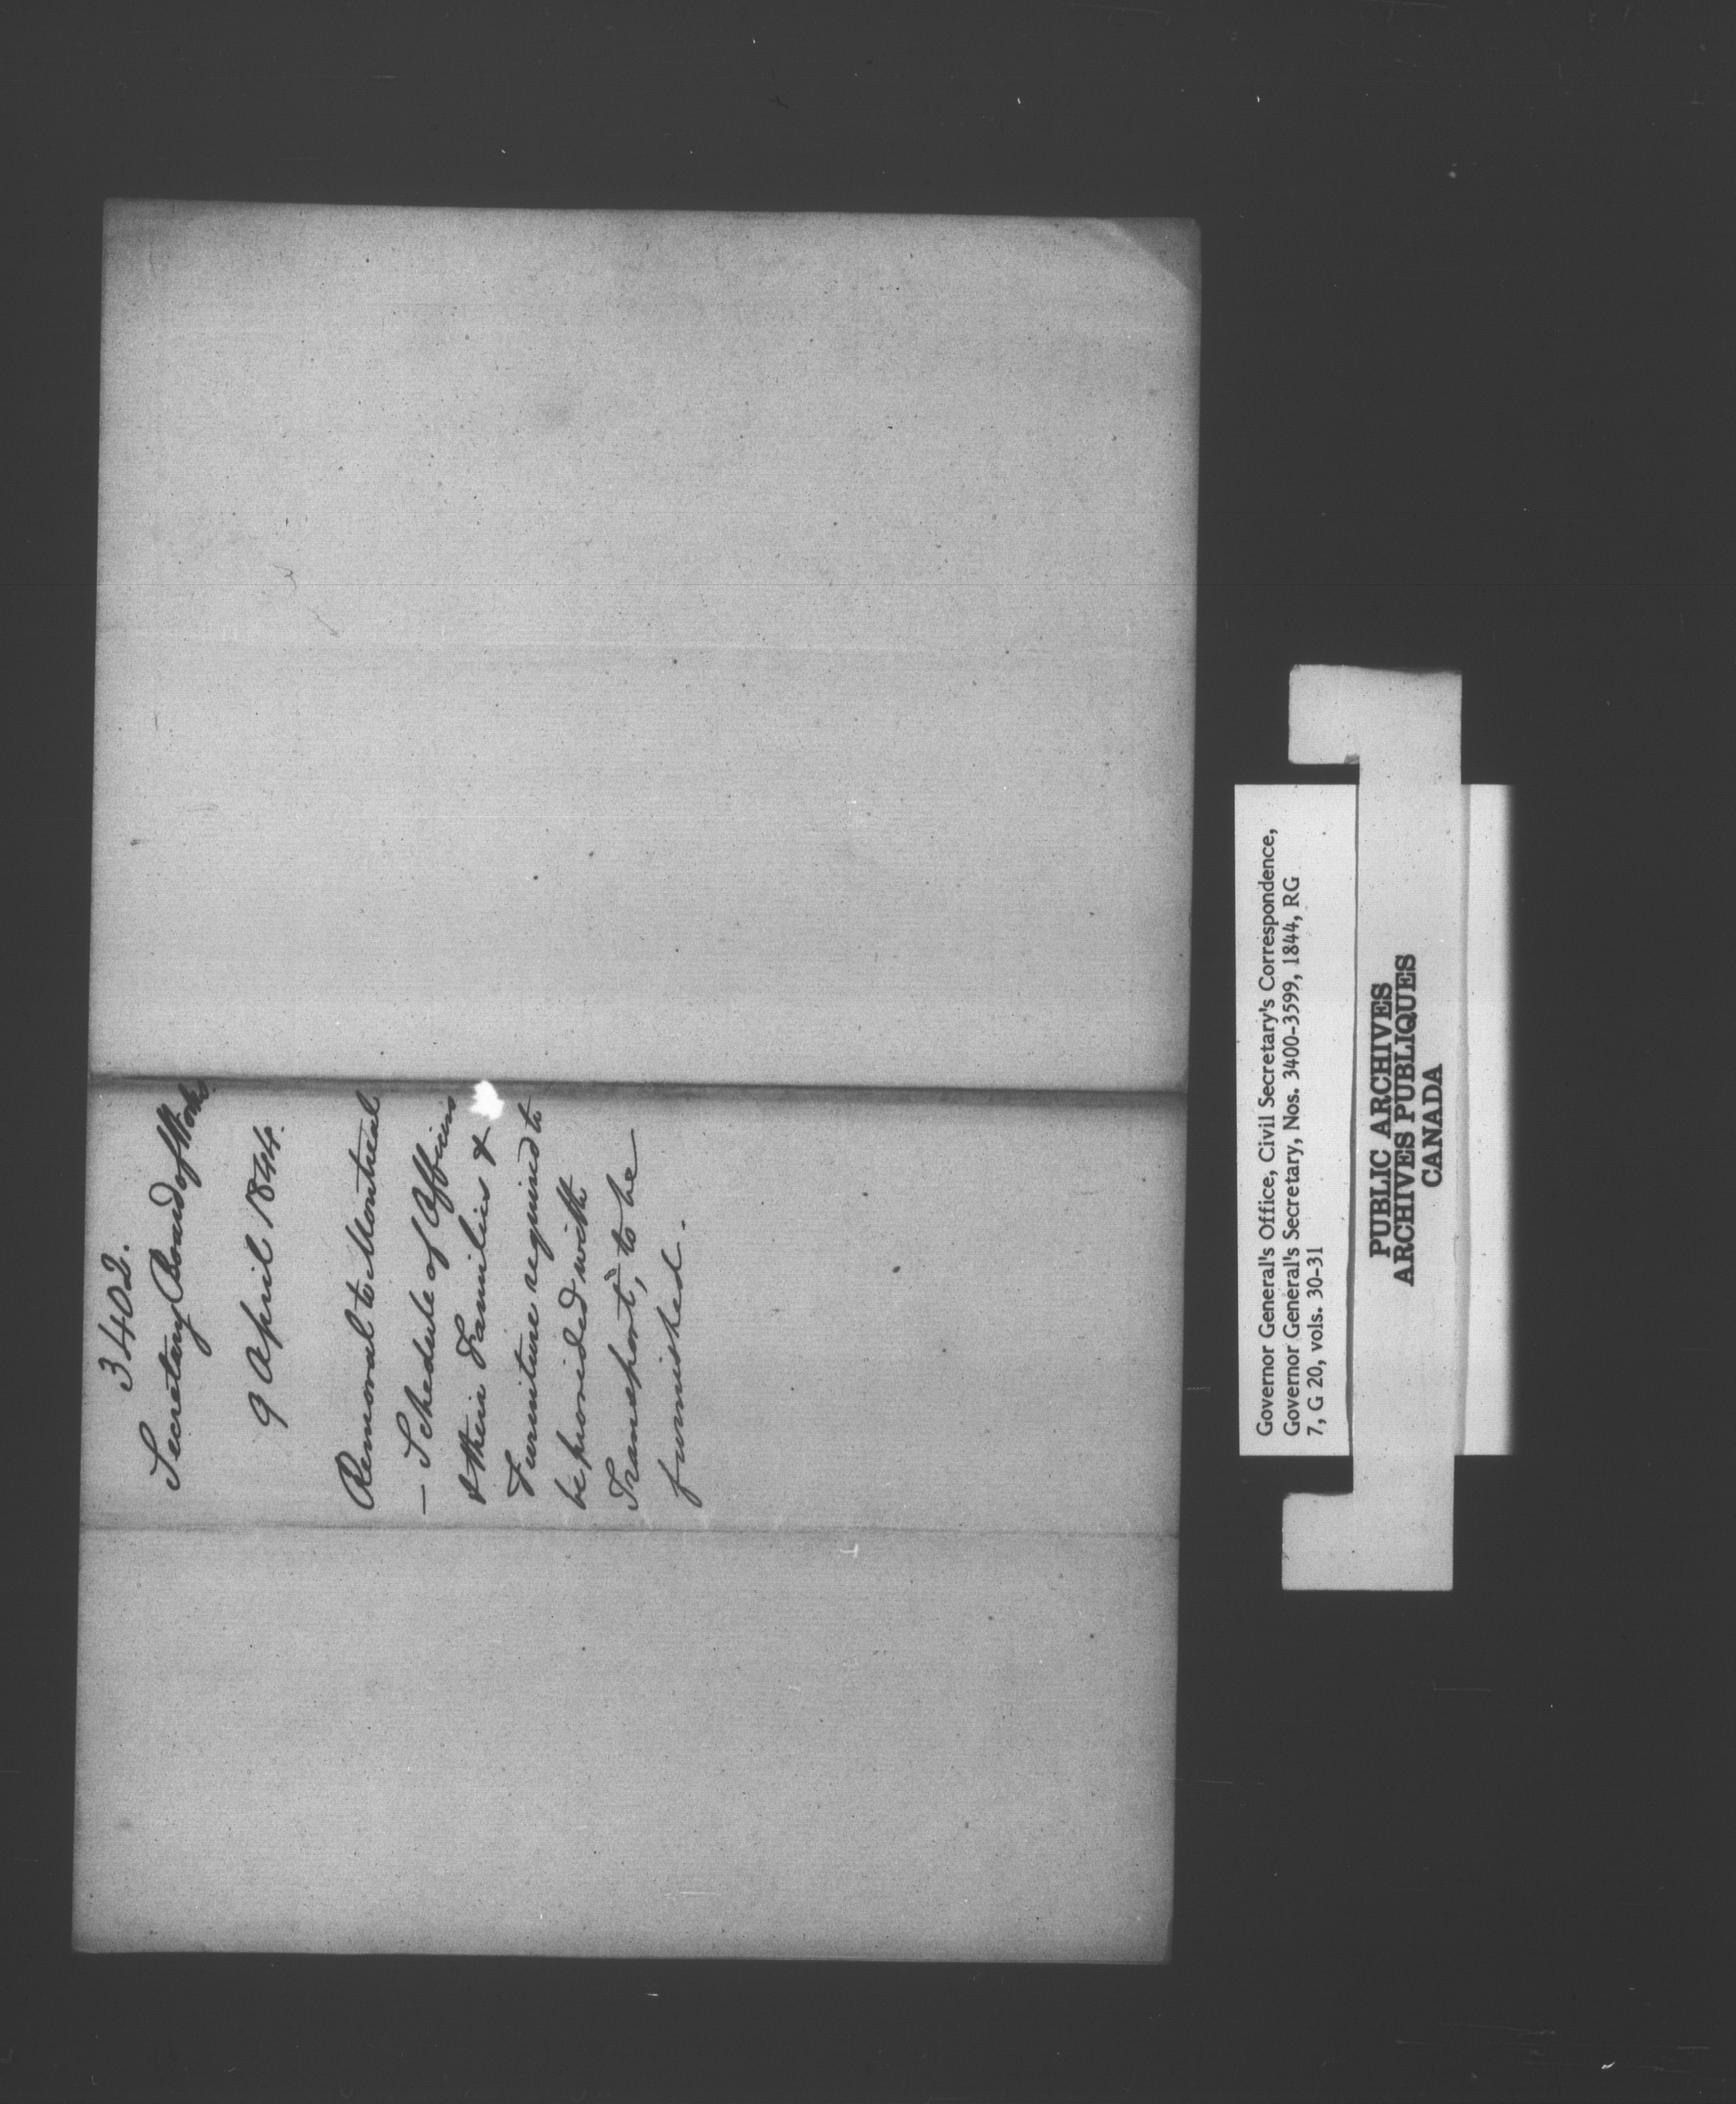 3402.
Secretary Board of Works
9 April 1844.
Removal to Montreal
— Schedule of Officers
& their Families &
Furniture required to
be provided with
Transport, to be
furnished.
Governor General's Office, Civil Secretary's Correspondence,
Governor General's Secretary, Nos. 3400-3599, 1844, RG
7, G 20, vols. 30-31
PUBLIC ARCHIVES
ARCHIVES PUBLIQUES
CANADA